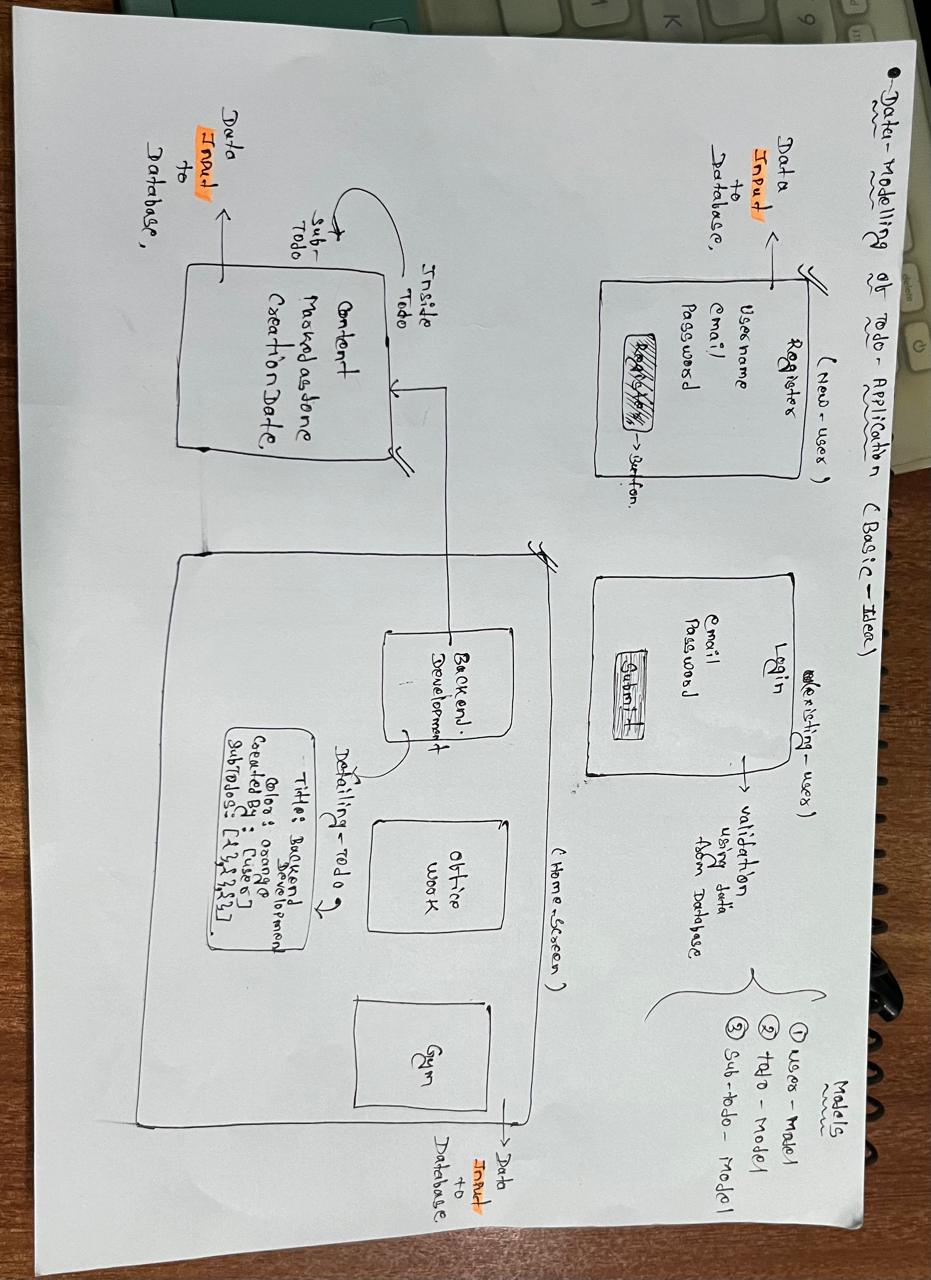 Data-Modelling of Todo-Application (Basic-Idea)
(New-user)
Register
Username
email
Password
Register
Button.
Data
Input
to
Database,
(existing-user)
Login
email
Password
Submit
validation
using data
from Database
Models
① user-Model
② todo-Model
③ Sub-todo-Model
(Home-Screen)
Backend.
Development
office
work
Gym
Data
Input
to
Database
Detailing-Todo
Title: Backend
Development
Color: orange
Created By: [user]
SubTodos: [{},{},{}].
Inside
Todo
Sub-
TODO
Content
Markedasdone
CreationDate,
Data
Input
to
Database,
delete
9
K